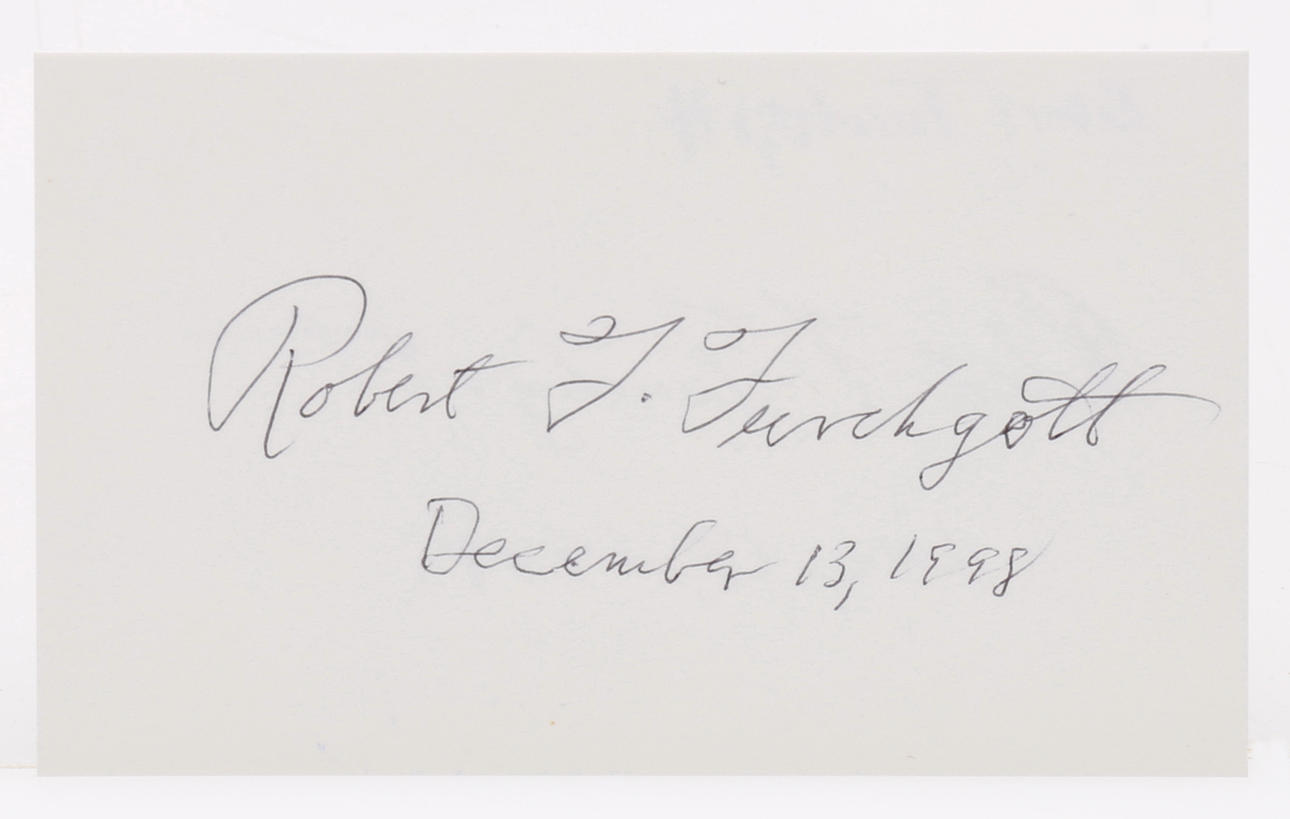 Robert F. Furchgott
December 13, 1998